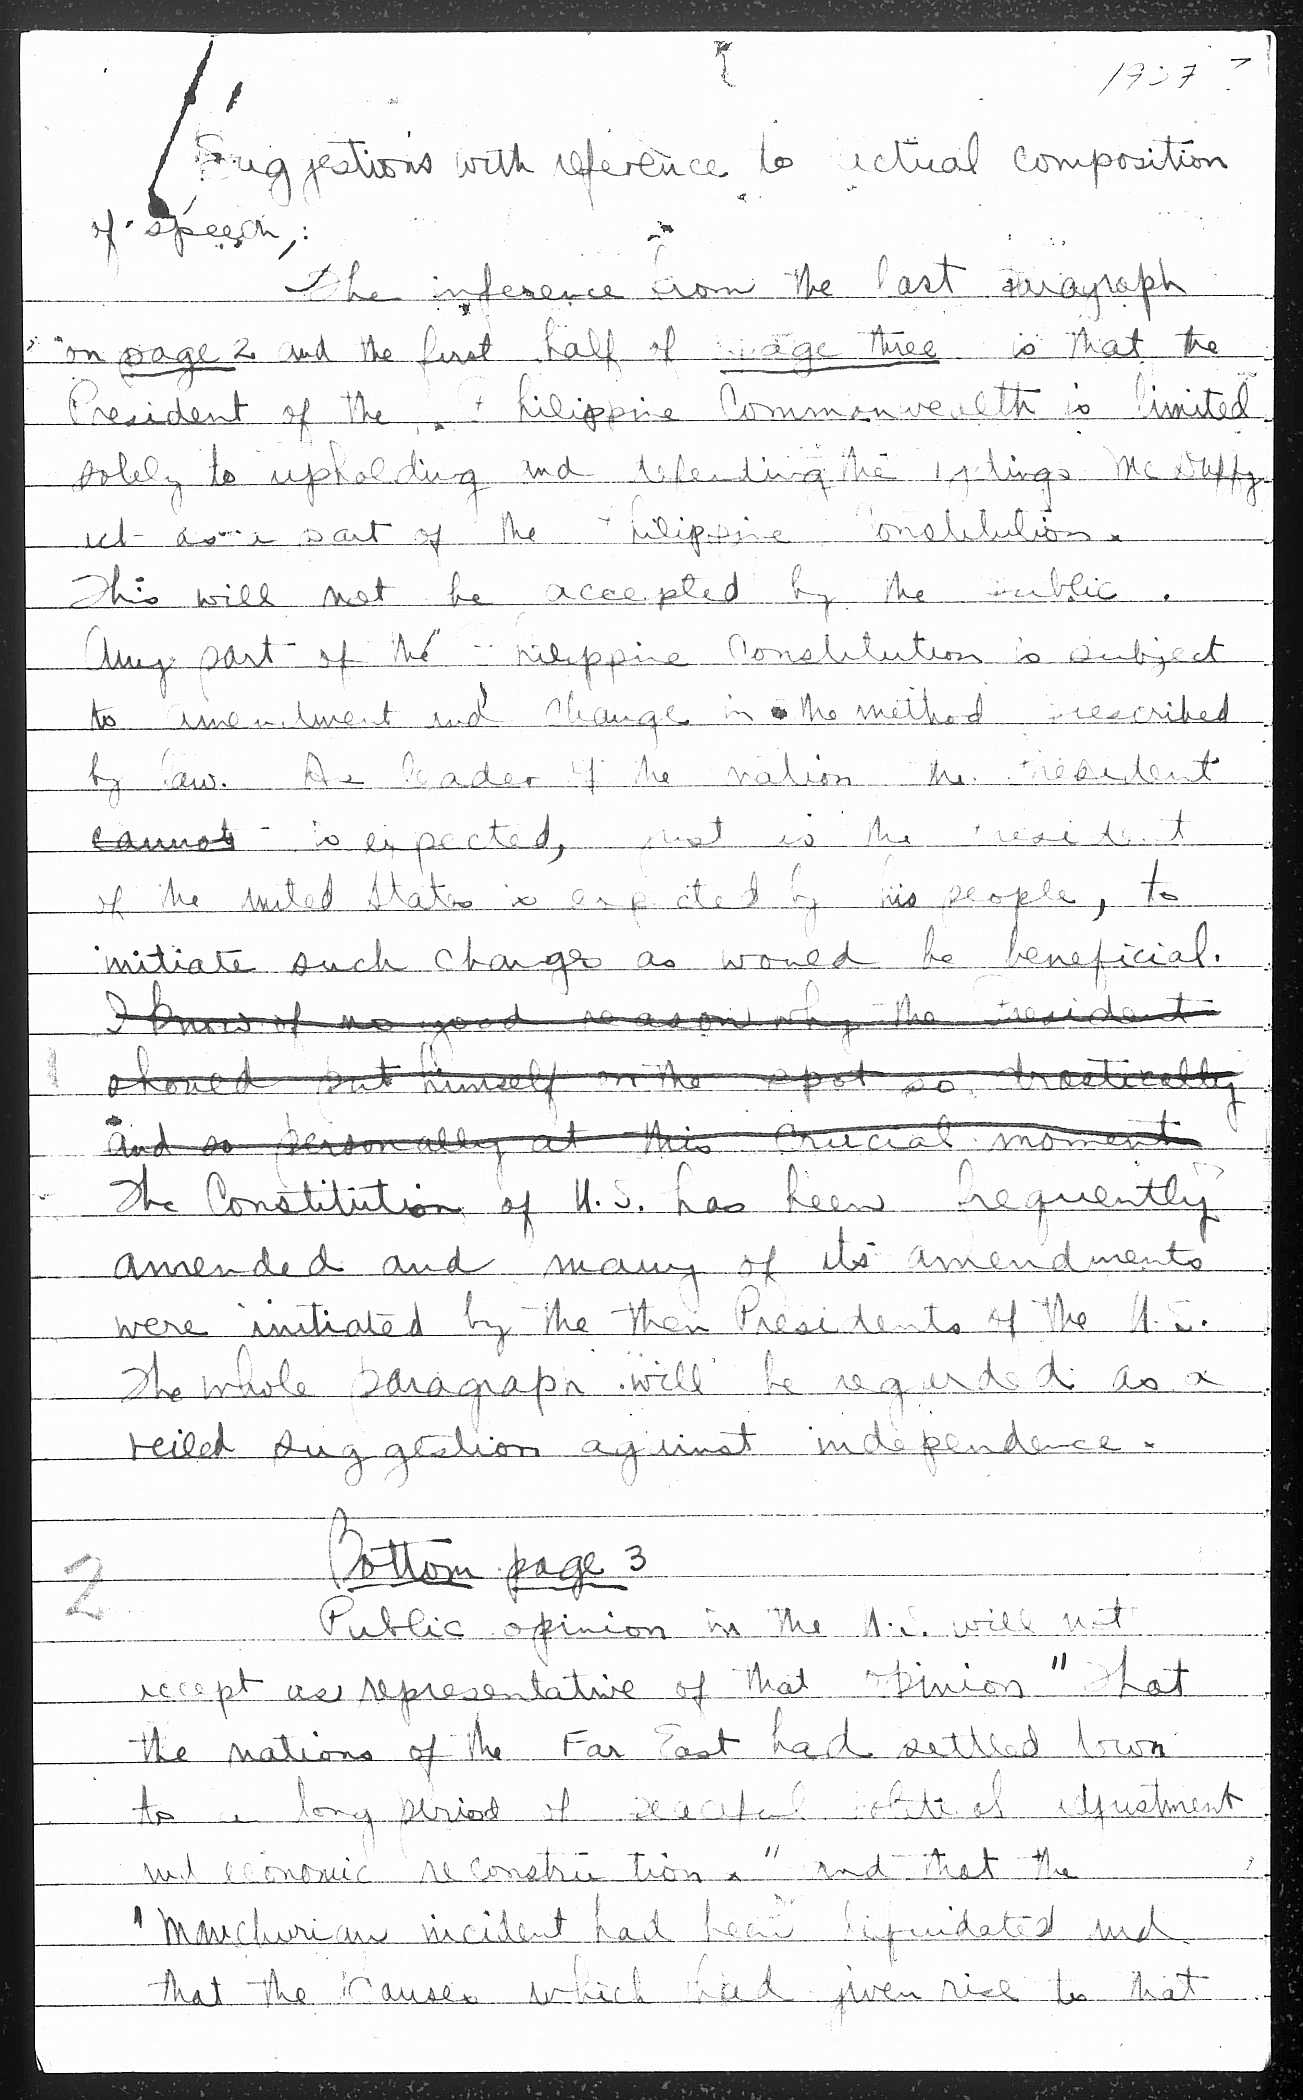 1937 ?
Suggestions with reference to actual composition
of speech,:
The inference from the last paragraph
on page 2 and the first half of page three is that the
President of the Philippine Commonwealth is limited
solely to upholding and defending the Tydings McDuffy
act as a part of the Philippine Constitution.
This will not be accepted by the public.
Any part of the Philippine Constitution is subject
to amendment and change in the method prescribed
by law. As leader of the nation the President
cannot is expected, just as the President
of the United States is expected by his people, to
initiate such changes as would be beneficial.
I know of no good reason why the President
should put himself on the spot so drastically
and so personally at this crucial moment
The Constitution of U.S. has been frequently
amended and many of its amendments
were initiated by the then Presidents of the U.S.
The whole paragraph will be regarded as a
veiled suggestion against independence.
Bottom page 3
2
Public opinion in the U.S. will not
accept as representative of that opinion "That
the nations of the Far East had settled down
to a long period of peaceful political adjustment
and economic reconstruction." and that the
"Manchurian incident had been liquidated and
that the causes which had given rise to that